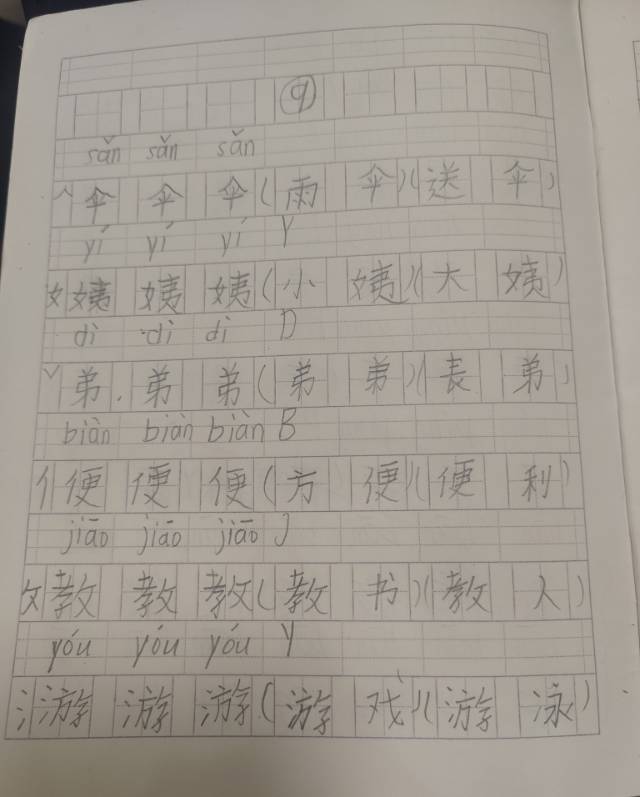 ⑨
sǎn sǎn sǎn
𠆢伞 伞 伞(雨 伞)(送 伞)
yí yí yí Y
女姨 姨 姨(小 姨)(大 姨)
dì dì dì D
丷弟 弟 弟(弟 弟)(表 弟)
biàn biàn biàn B
亻便 便 便(方 便)(便 利)
jiāo jiāo jiāo J
攵教 教 教(教 书)(教 人)
yóu yóu yóu Y
氵游 游 游(游 戏)(游 泳)